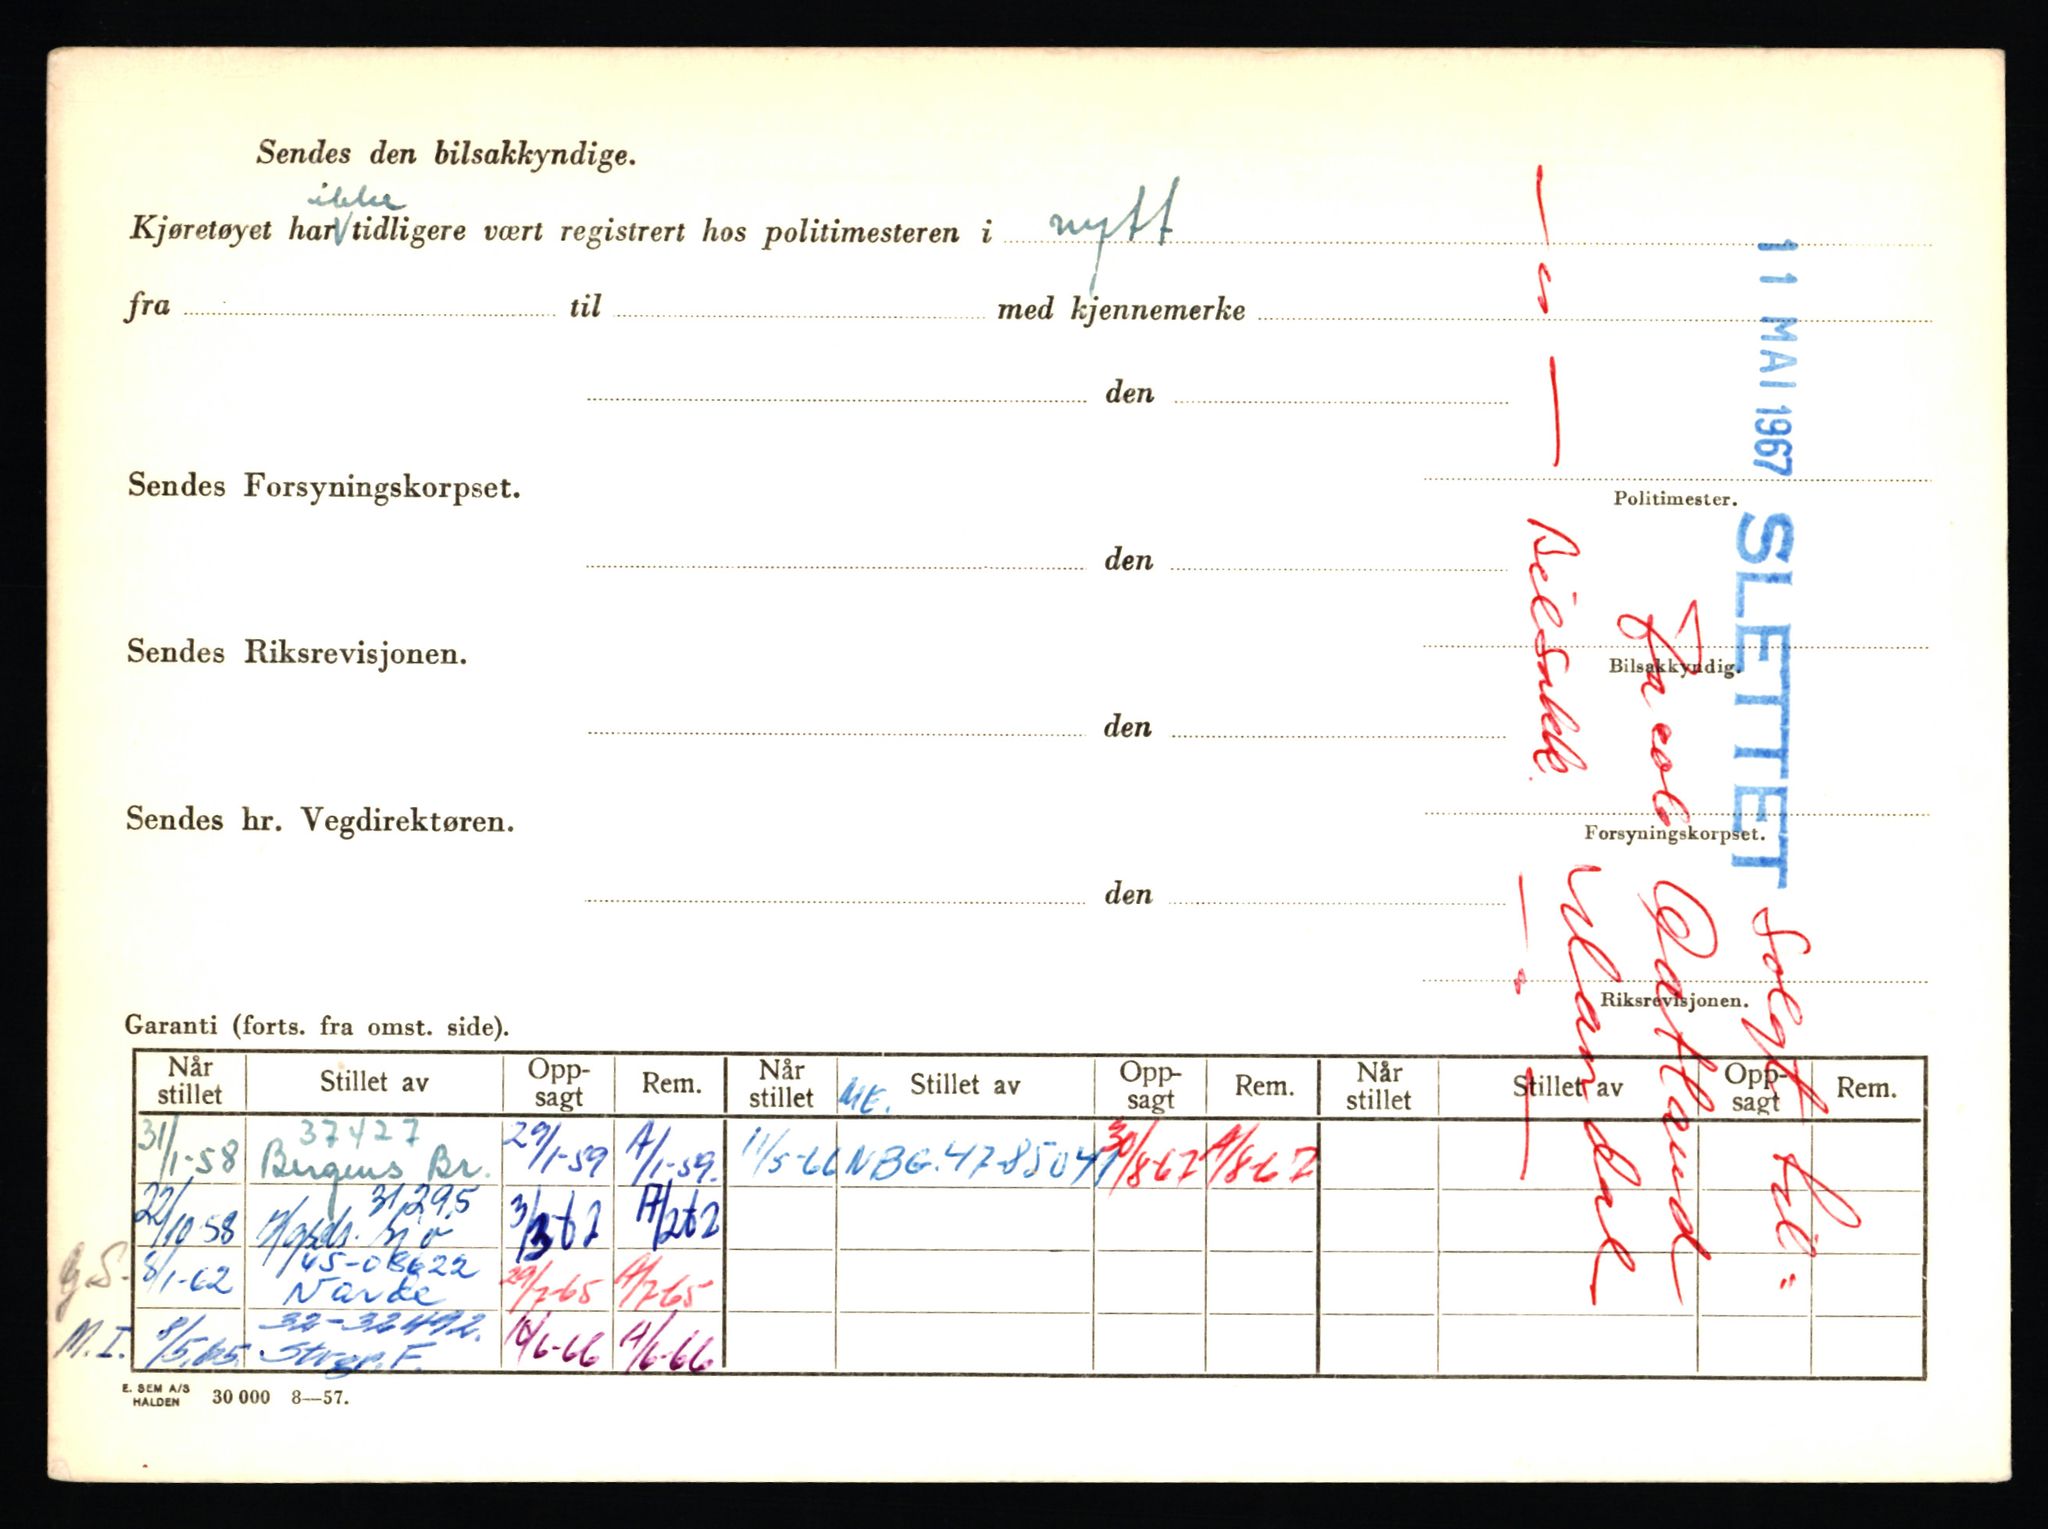 Sendes den bilsakkyndige.
ikke
Kjøretøyet har tidligere vært registrert hos politimesteren i nytt
fra til med kjennemerke
den
Politimester.
Sendes Forsyningskorpset.
den
Bilsakkyndig.
Sendes Riksrevisjonen.
den
Forsyningskorpset.
Sendes hr. Vegdirektøren.
den
Riksrevisjonen.
11 MAI 1967 SLETTET
Solgt til
Garanti (forts. fra omst. side).
Når stillet Stillet av Opp-sagt Rem. Når stillet Stillet av Opp-sagt Rem. Når stillet Stillet av Opp-sagt Rem.
ME.
31/1-58 37427 Bergens Br. 29/1-59 A/1-59. 11/5-66 NBG.47-85041 30/8-67 A/8-67
22/10-58 31,295 3/3-62 A/2-62
G.S. 8/1-62 45-08622 Norske 29/7-65 A/7-65
M.I. 8/5.65. 32-32492. Strgr.F. 14/6-66 A/6-66.
E. SEM A/S HALDEN 30 000 8—57.